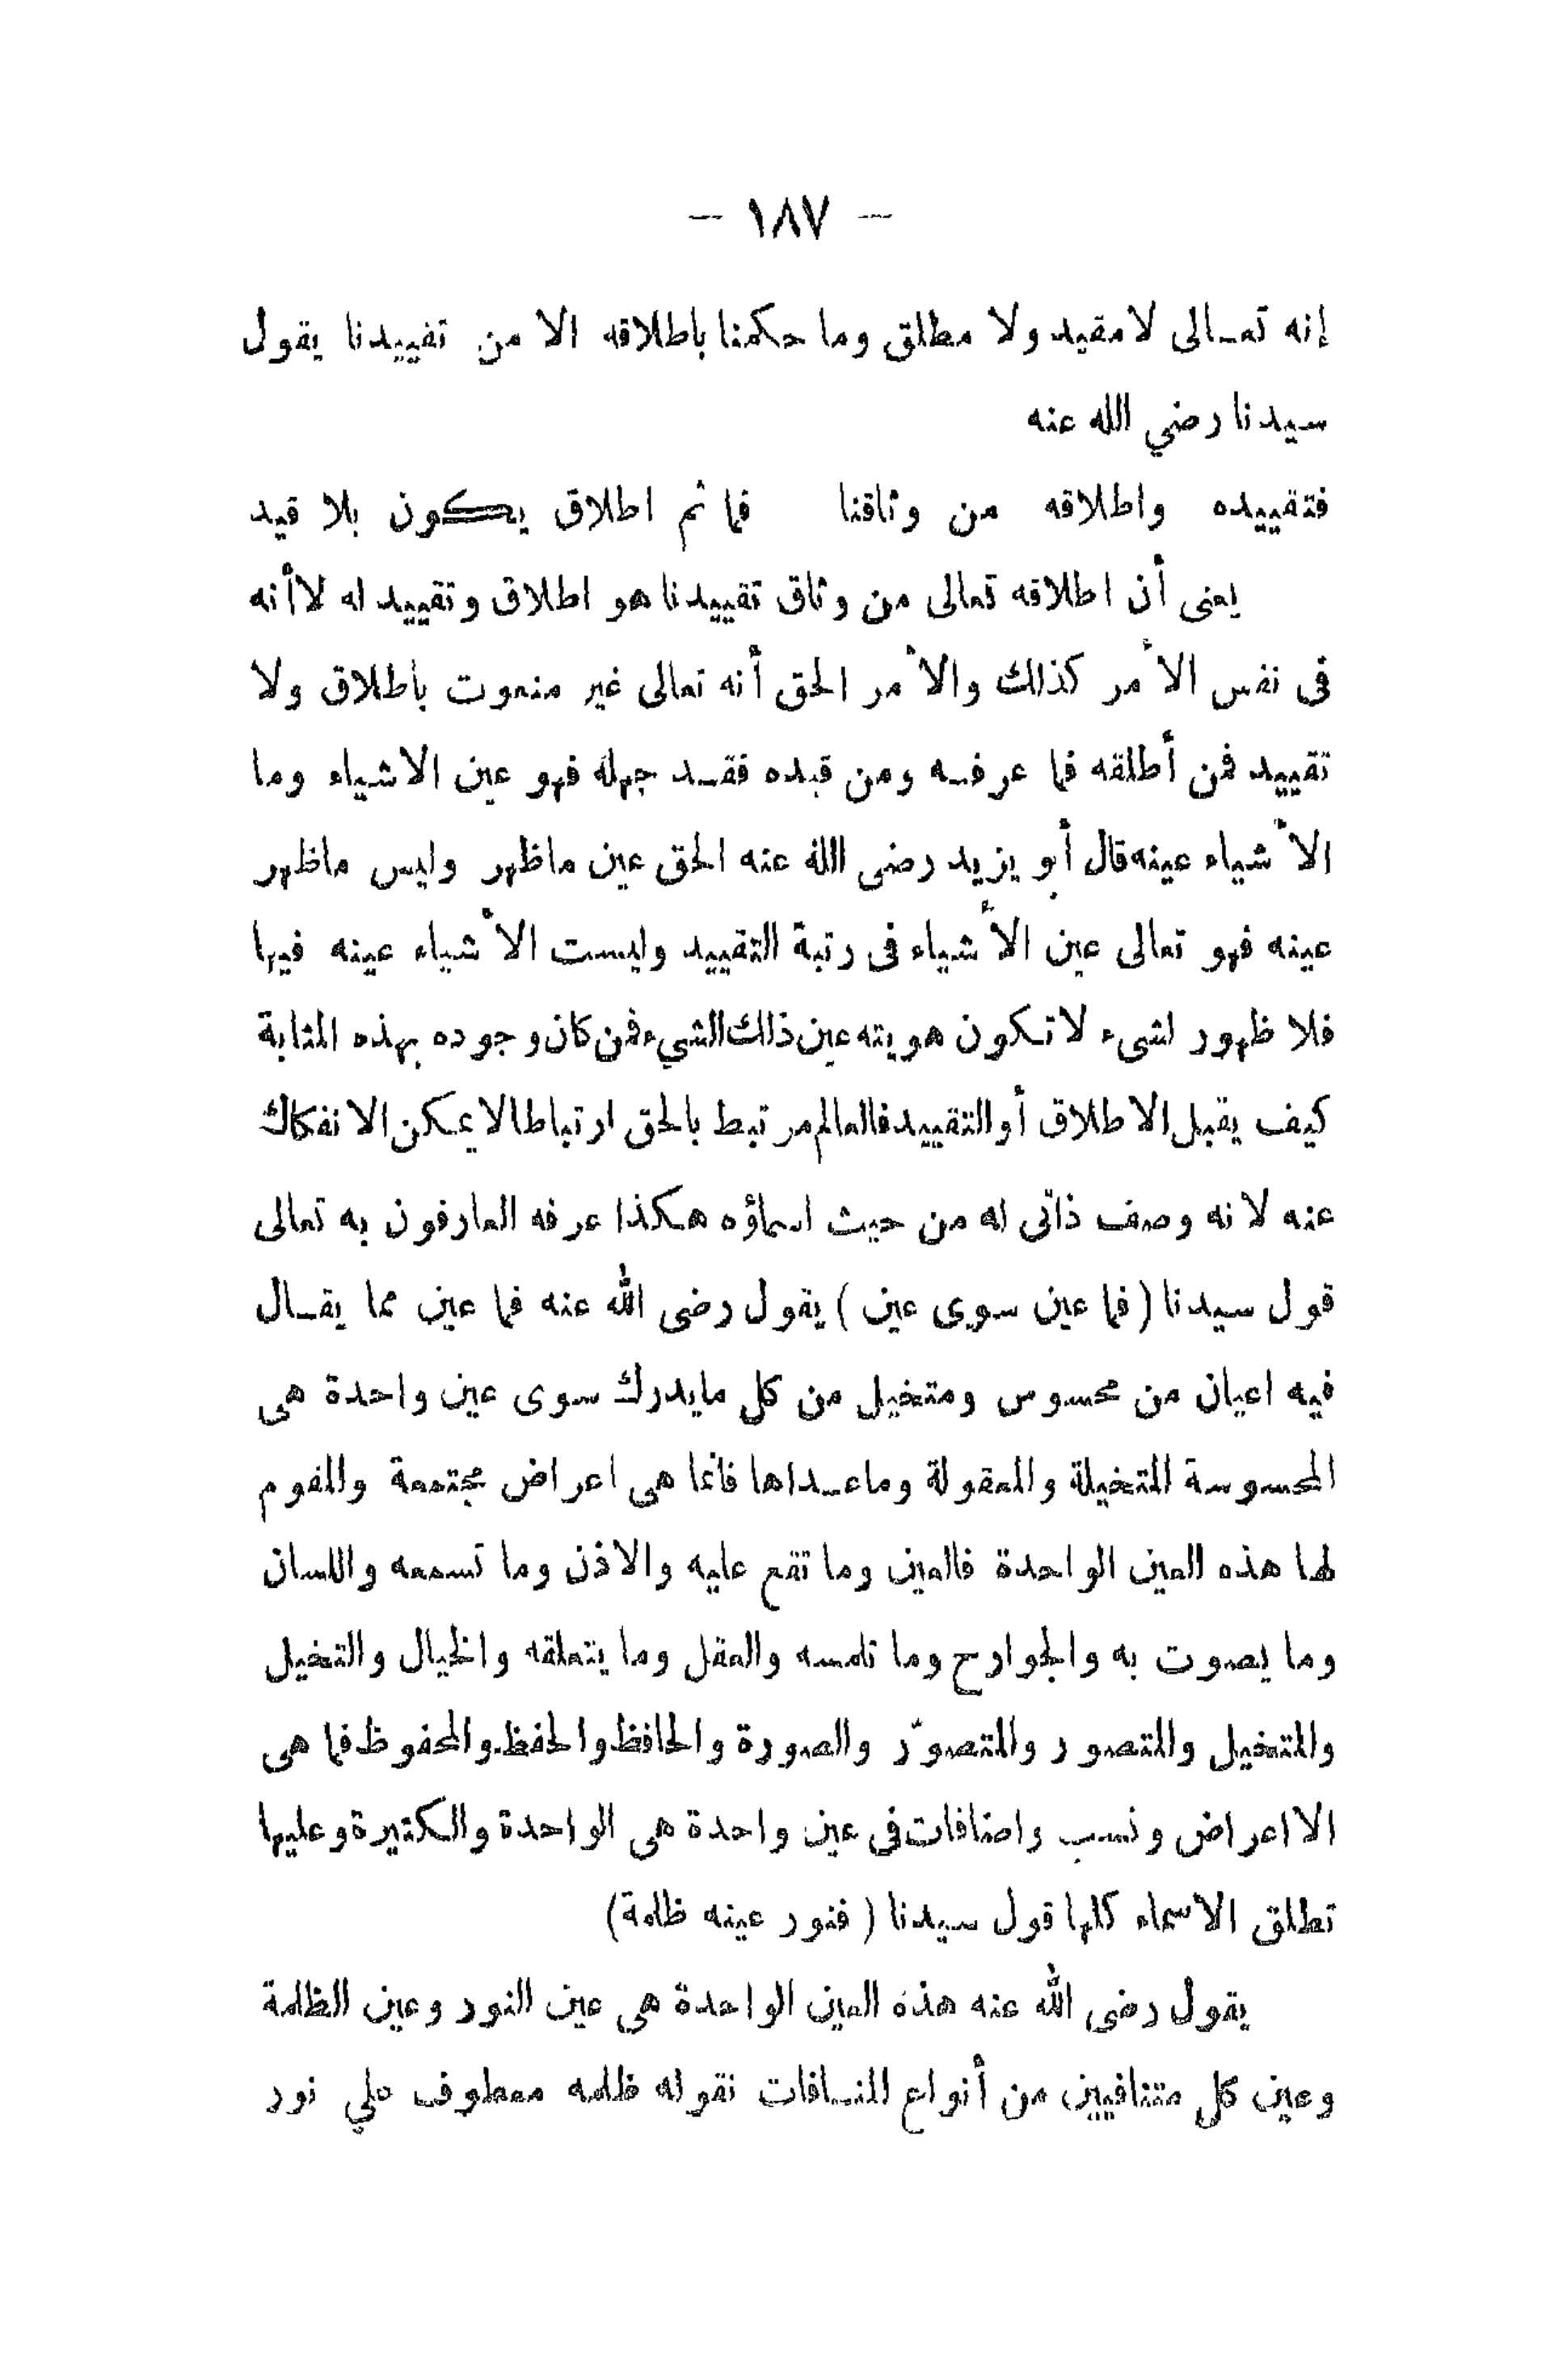 — ١٨٧ —
إنه تعالى لامقيد ولا مطلق وما حكمنا باطلاقه الا من تفييدنا يقول
سيدنا رضي الله عنه
فتقييده واطلاقه من وثاقنا فما ثم اطلاق يكون بلا قيد
يعنى أن اطلاقه تعالى من وثاق تقييدنا هو اطلاق وتقييد له لاأنه
فى نفس الأمر كذلك والأمر الحق أنه تعالى غير منعوت بأطلاق ولا
تقييد فمن أطلقه فما عرفه ومن قيده فقد جهله فهو عين الاشياء وما
الأشياء عينه قال أبو يزيد رضى الله عنه الحق عين ماظهر وليس ماظهر
عينه فهو تعالى عين الأشياء فى رتبة التقييد وليست الأشياء عينه فيها
فلا ظهور لشىء لا تكون هويته عين ذلك الشيء فمن كان وجوده بهذه المثابة
كيف يقبل الاطلاق أو التقييد فالعالم مرتبط بالحق ارتباطا لا يمكن الانفكاك
عنه لانه وصف ذاتى له من حيث اسماؤه هكذا عرفه العارفون به تعالى
قول سيدنا ( فما عين سوى عين ) يقول رضى الله عنه فما عين مما يقال
فيه اعيان من محسوس ومتخيل من كل مايدرك سوى عين واحدة هى
المحسوسة المتخيلة والمعقولة وماعداها فانما هى اعراض مجتمعة والمقوم
لها هذه العين الواحدة فالعين وما تقع عليه والاذن وما تسمعه واللسان
وما يصوت به والجوارح وما تلمسه والعقل وما يتعلقه والخيال والتخيل
والمتخيل والمتصور والمتصوّر والصورة والحافظ والحفظ والمحفوظ فما هى
الا اعراض ونسب واضافات فى عين واحدة هى الواحدة والكثيرة وعليها
تطلق الاسماء كلها قول سيدنا ( فنور عينه ظلمة)
يقول رضى الله عنه هذه العين الواحدة هى عين النور وعين الظلمة
وعين كل متنافيين من أنواع المنافات نقوله ظلمه معطوف علي نور